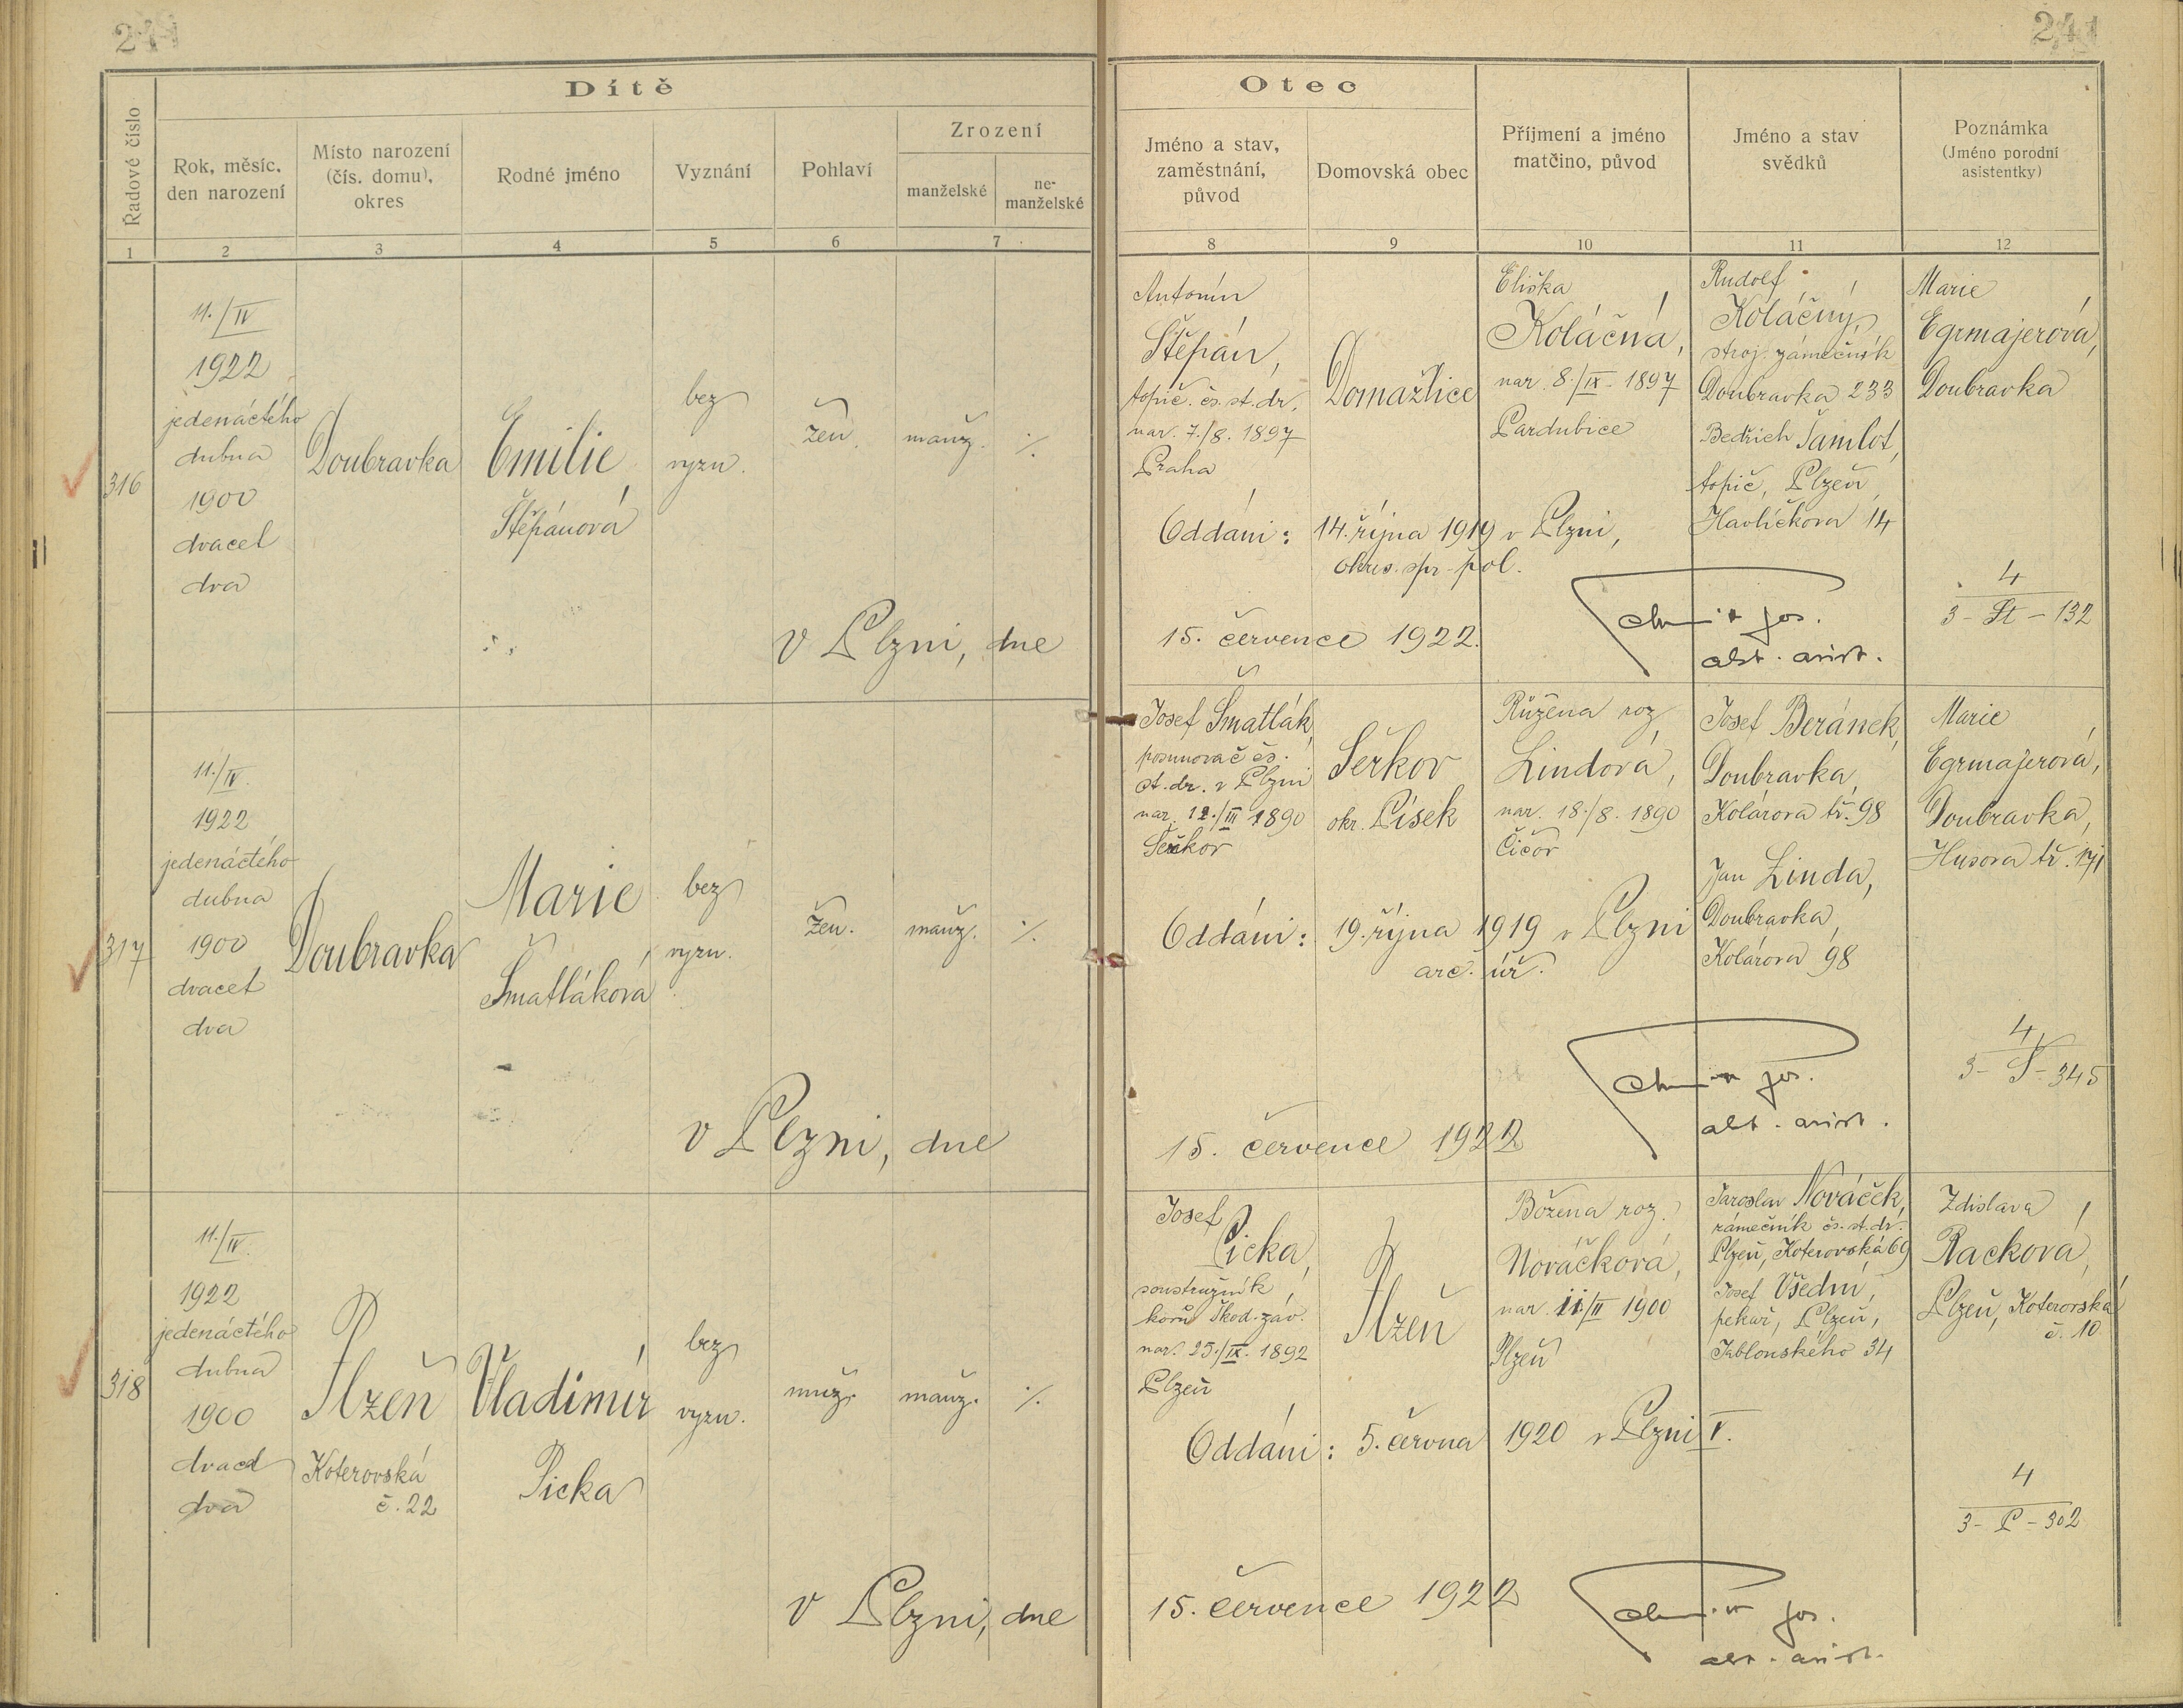 241
241
Dítě
Řadové číslo
Rok, měsíc,
den narození
Místo narození
(čís. domu),
okres
Rodné jméno
Vyznání
Pohlaví
Zrození
manželské
ne-
manželské
1
2
3
4
5
6
7
Otec
Jméno a stav,
zaměstnání,
původ
Domovská obec
Příjmení a jméno
matčino, původ
Jméno a stav
svědků
Poznámka
(Jméno porodní
asistentky)
8
9
10
11
12
316
11./IV
1922
jedenáctého
dubna
1900
dvacet
dva
Doubravka
Emilie
Štěpánová
bez
vyzn.
žen.
manž.
./.
Antonín
Štěpán,
topič čs. st. dr.
nar. 7./8. 1897
Praha
Domažlice
Eliška
Koláčná,
nar. 8./IX. 1897
Pardubice
Rudolf
Koláčný,
stroj. zámečník
Doubravka 233
Bedřich Šamlot,
topič, Plzeň,
Havlíčkova 14
Marie
Egrmajerová,
Doubravka
Oddáni: 14. října 1919 v Plzni,
okres. spr. pol.
4
3 - St - 132
v Plzni, dne 15. července 1922.
jos.
317
11./IV.
1922
jedenáctého
dubna
1900
dvacet
dva
Doubravka
Marie
Šmatláková
bez
vyzn.
žen.
manž.
./.
Josef Šmatlák,
posunovač čs.
st. dr. v Plzni
nar. 12./III 1890
Seřkov
okr. Písek
Růžena roz.
Lindová,
nar. 18./8. 1890
Čičov
Josef Beránek,
Doubravka,
Kolárova tř. 98
Jan Linda,
Doubravka,
Kolárova 98
Marie
Egrmajerová,
Doubravka,
Husova tř. 171
Oddáni: 19. října 1919 v Plzni
arc. úř.
4
3 - S - 345
v Plzni, dne 15. července 1922
jos.
318
11./IV.
1922
jedenáctého
dubna
1900
dvacet
dva
Plzeň
Koterovská
č. 22
Vladimír
Picka
bez
vyzn.
muž.
manž.
./.
Josef
Picka,
soustružník
korů Škod. záv.
nar. 25./IX. 1892
Plzeň
Plzeň
Božena roz.
Nováčková,
nar. 11/II 1900
Plzeň
Jaroslav Nováček,
zámečník čs. st. dr.
Plzeň, Koterovská 69
Josef Všední,
pekař, Plzeň,
Jablonského 34
Zdislava
Racková,
Plzeň, Koterovská
č. 10
Oddáni: 5. června 1920 v Plzni V.
4
3 - P - 302
v Plzni, dne 15. července 1922
jos.